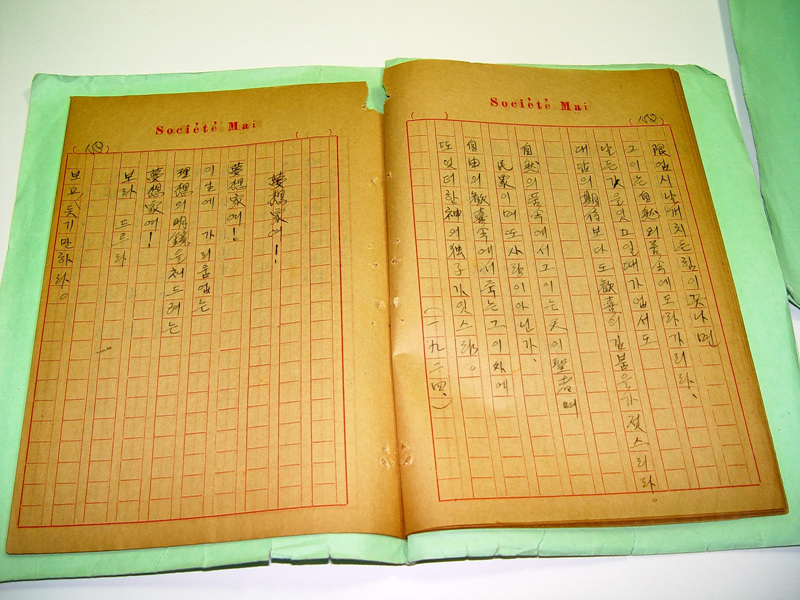 Société Mai
限업시날개치든힘이못나면
그이는自然의품속에도라가리라、
날든 을잇고일때가업서도
期待보다도歡喜의깁븜을가젓스리라。
自然의품속에서그이는 聖者며
民衆이며또사람이아닌가、
自由의歡喜속에서죽는그이外에
또엇더한神의独子가잇스랴。
(一九二四、)
Société Mai
夢想家여!
夢想家여!
이 눈에 가리움업는
理想의明鏡을처드려는
夢想家여!
보라 드르라
보고、듯기만하라。